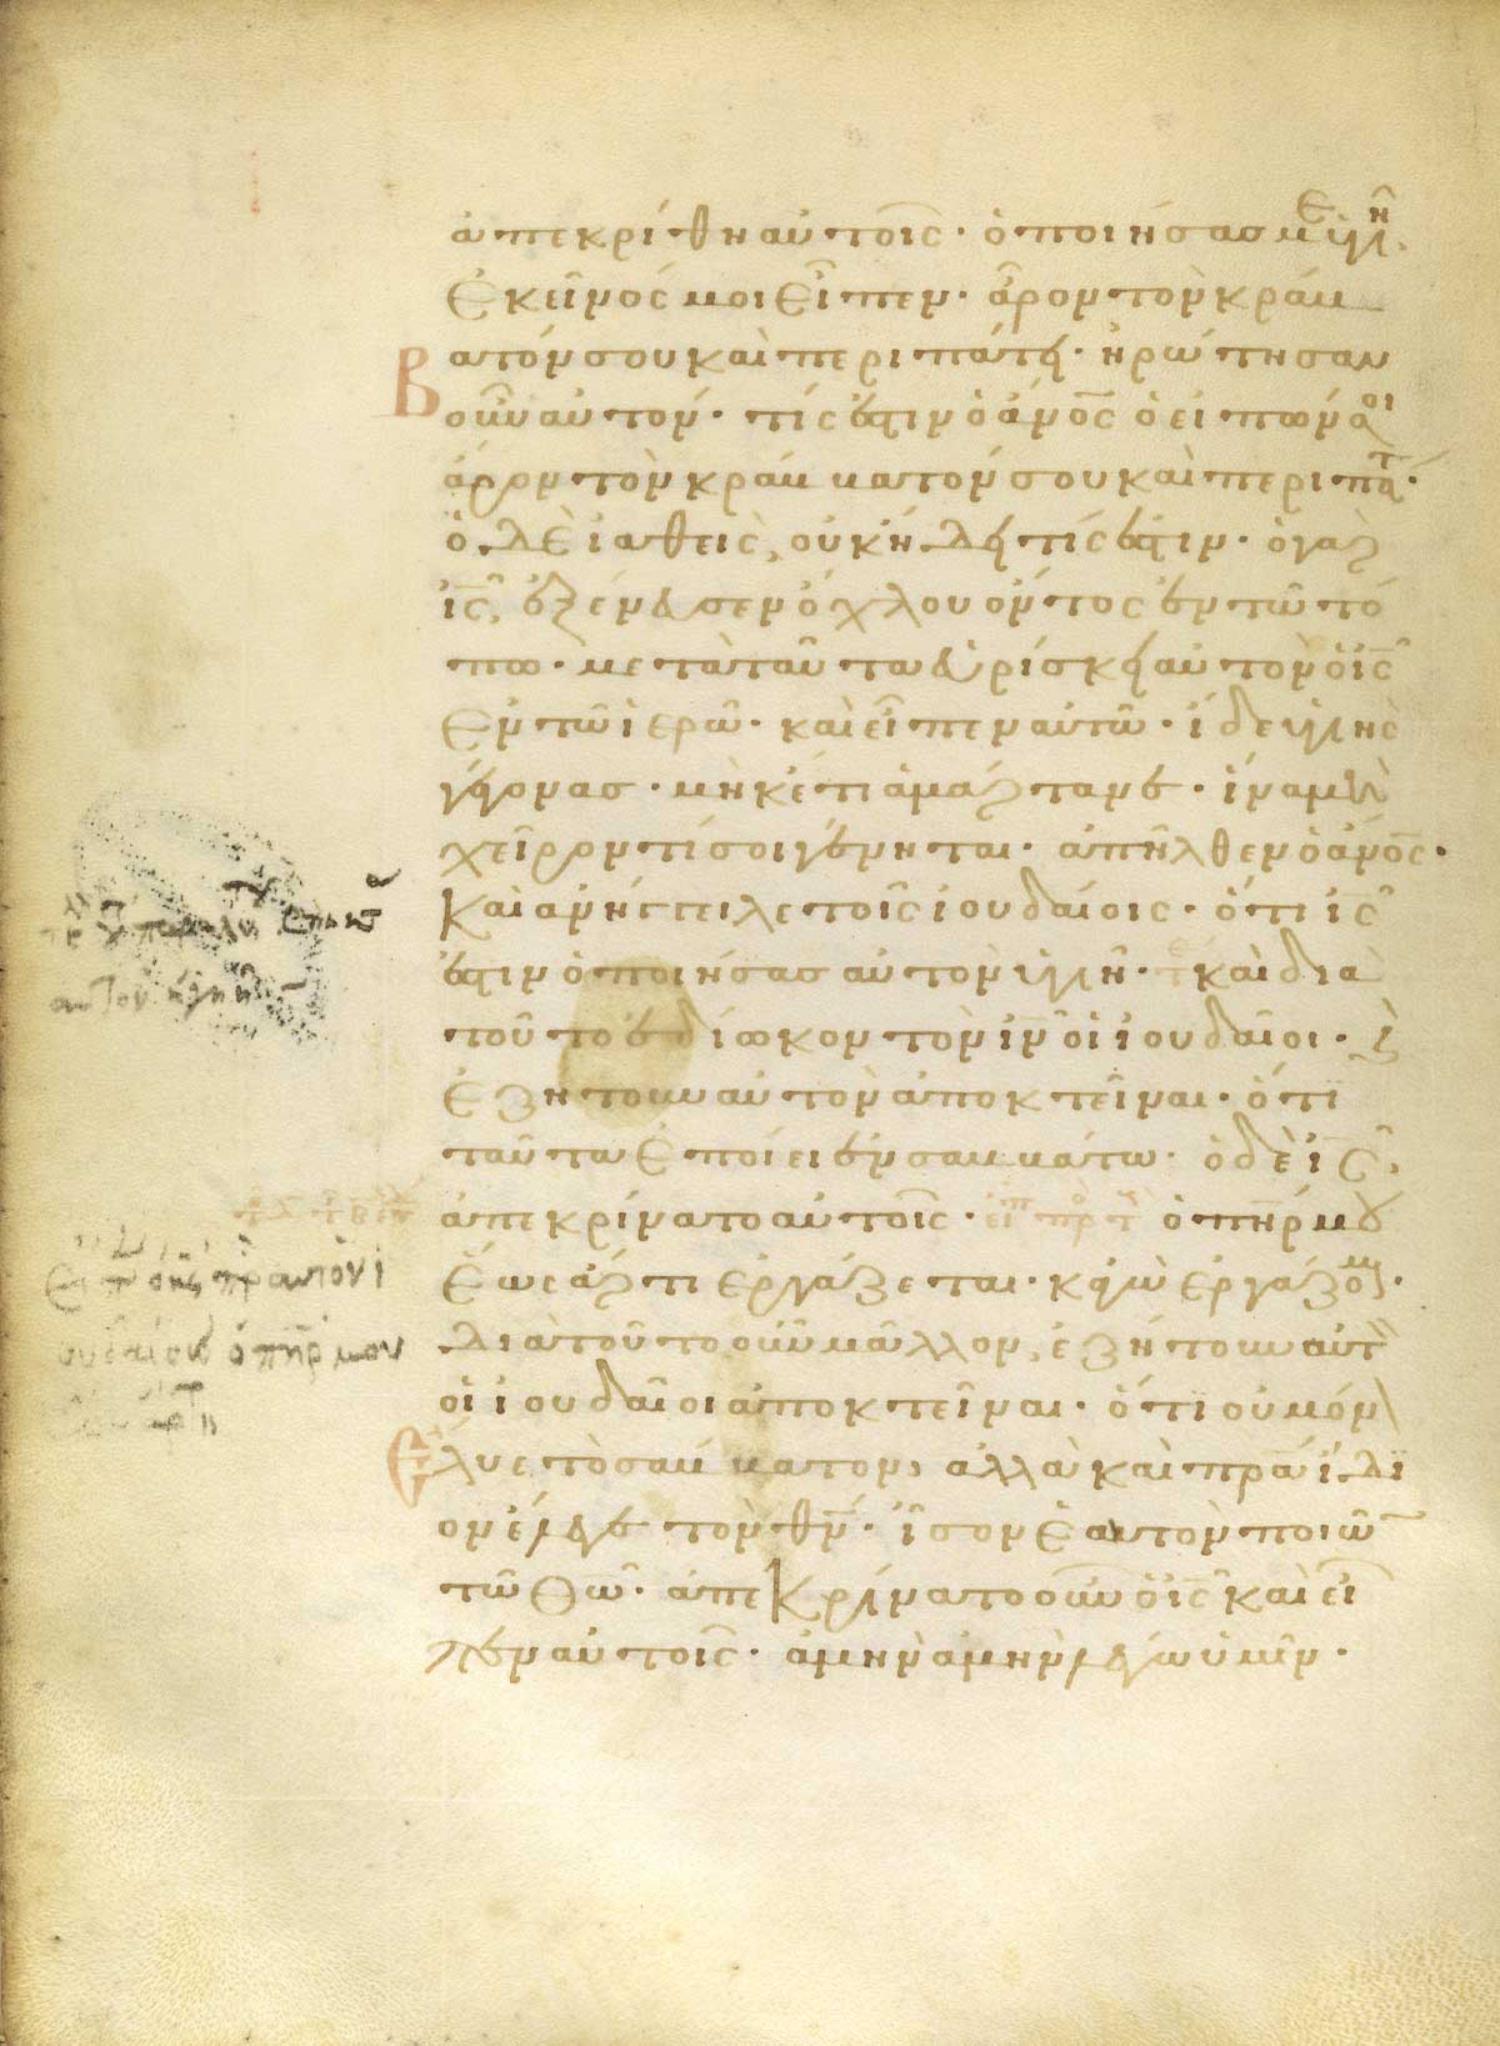 ἀπεκρίθη αὐτοῖς· ὁ ποιήσας με ὑγιῆ,
ἐκεῖνός μοι εἶπεν· ἆρον τὸν κράμ
ατόν σου καὶ περιπάτει· ἠρώτησαν
Β
οὖν αὐτόν· τίς ἐστιν ὁ ἄνος ὁ εἰπών σοι
ἆρον τὸν κράμματόν σου καὶ περιπάτ·
ὁ δὲ ἰαθεὶς, οὐκ ᾔδει τίς ἐστιν· ὁ γὰρ
ις, ἐξένευσεν ὄχλου ὄντος ἐν τῶ τό
πω· μετὰ ταῦτα εὑρίσκει αὐτὸν ὁ ις
ἐν τῶ ἱερῶ· καὶ εἶπεν αὐτῶ· ἴδε ὑγιὴς
γέγονας· μηκέτι ἁμάρτανε· ἵνα μὴ
χεῖρόν τί σοι γένηται· ἀπῆλθεν ὁ ἄνος·
καὶ ἀνήγγειλε τοῖς ἰουδαίοις· ὅτι ις
ἐστιν ὁ ποιήσας αὐτὸν ὑγιῆ· καὶ διὰ
τοῦτο ἐδίωκον τὸν ιν οἱ ἰουδαῖοι· ϗ
ἐζήτουν αὐτὸν ἀποκτεῖναι· ὅτι
ταῦτα ἐποίει ἐν σαμμάτω· ὁ δὲ ις,
ἀπεκρίνατο αὐτοῖς· ὁ πηρ μου
ἕως ἄρτι ἐργάζεται· κἀγὼ ἐργάζομ·
διὰ τοῦτο οὖν μᾶλλον, ἐζήτουν αὐτ
οἱ ἰουδαῖοι ἀποκτεῖναι· ὅτι οὐ μόν
ἔλυε τὸ σάμματον, ἀλλὰ καὶ πρα ἴδι
ον ἔλεγε τὸν θν· ἴσον ἑαυτὸν ποιῶ
τῶ θω· ἀπεκρίνατο οὖν ὁ ις καὶ εἶ
πεν αὐτοῖς· ἀμὴν ἀμὴν λέγω ὑμῖν·
ὁ πηρ μου